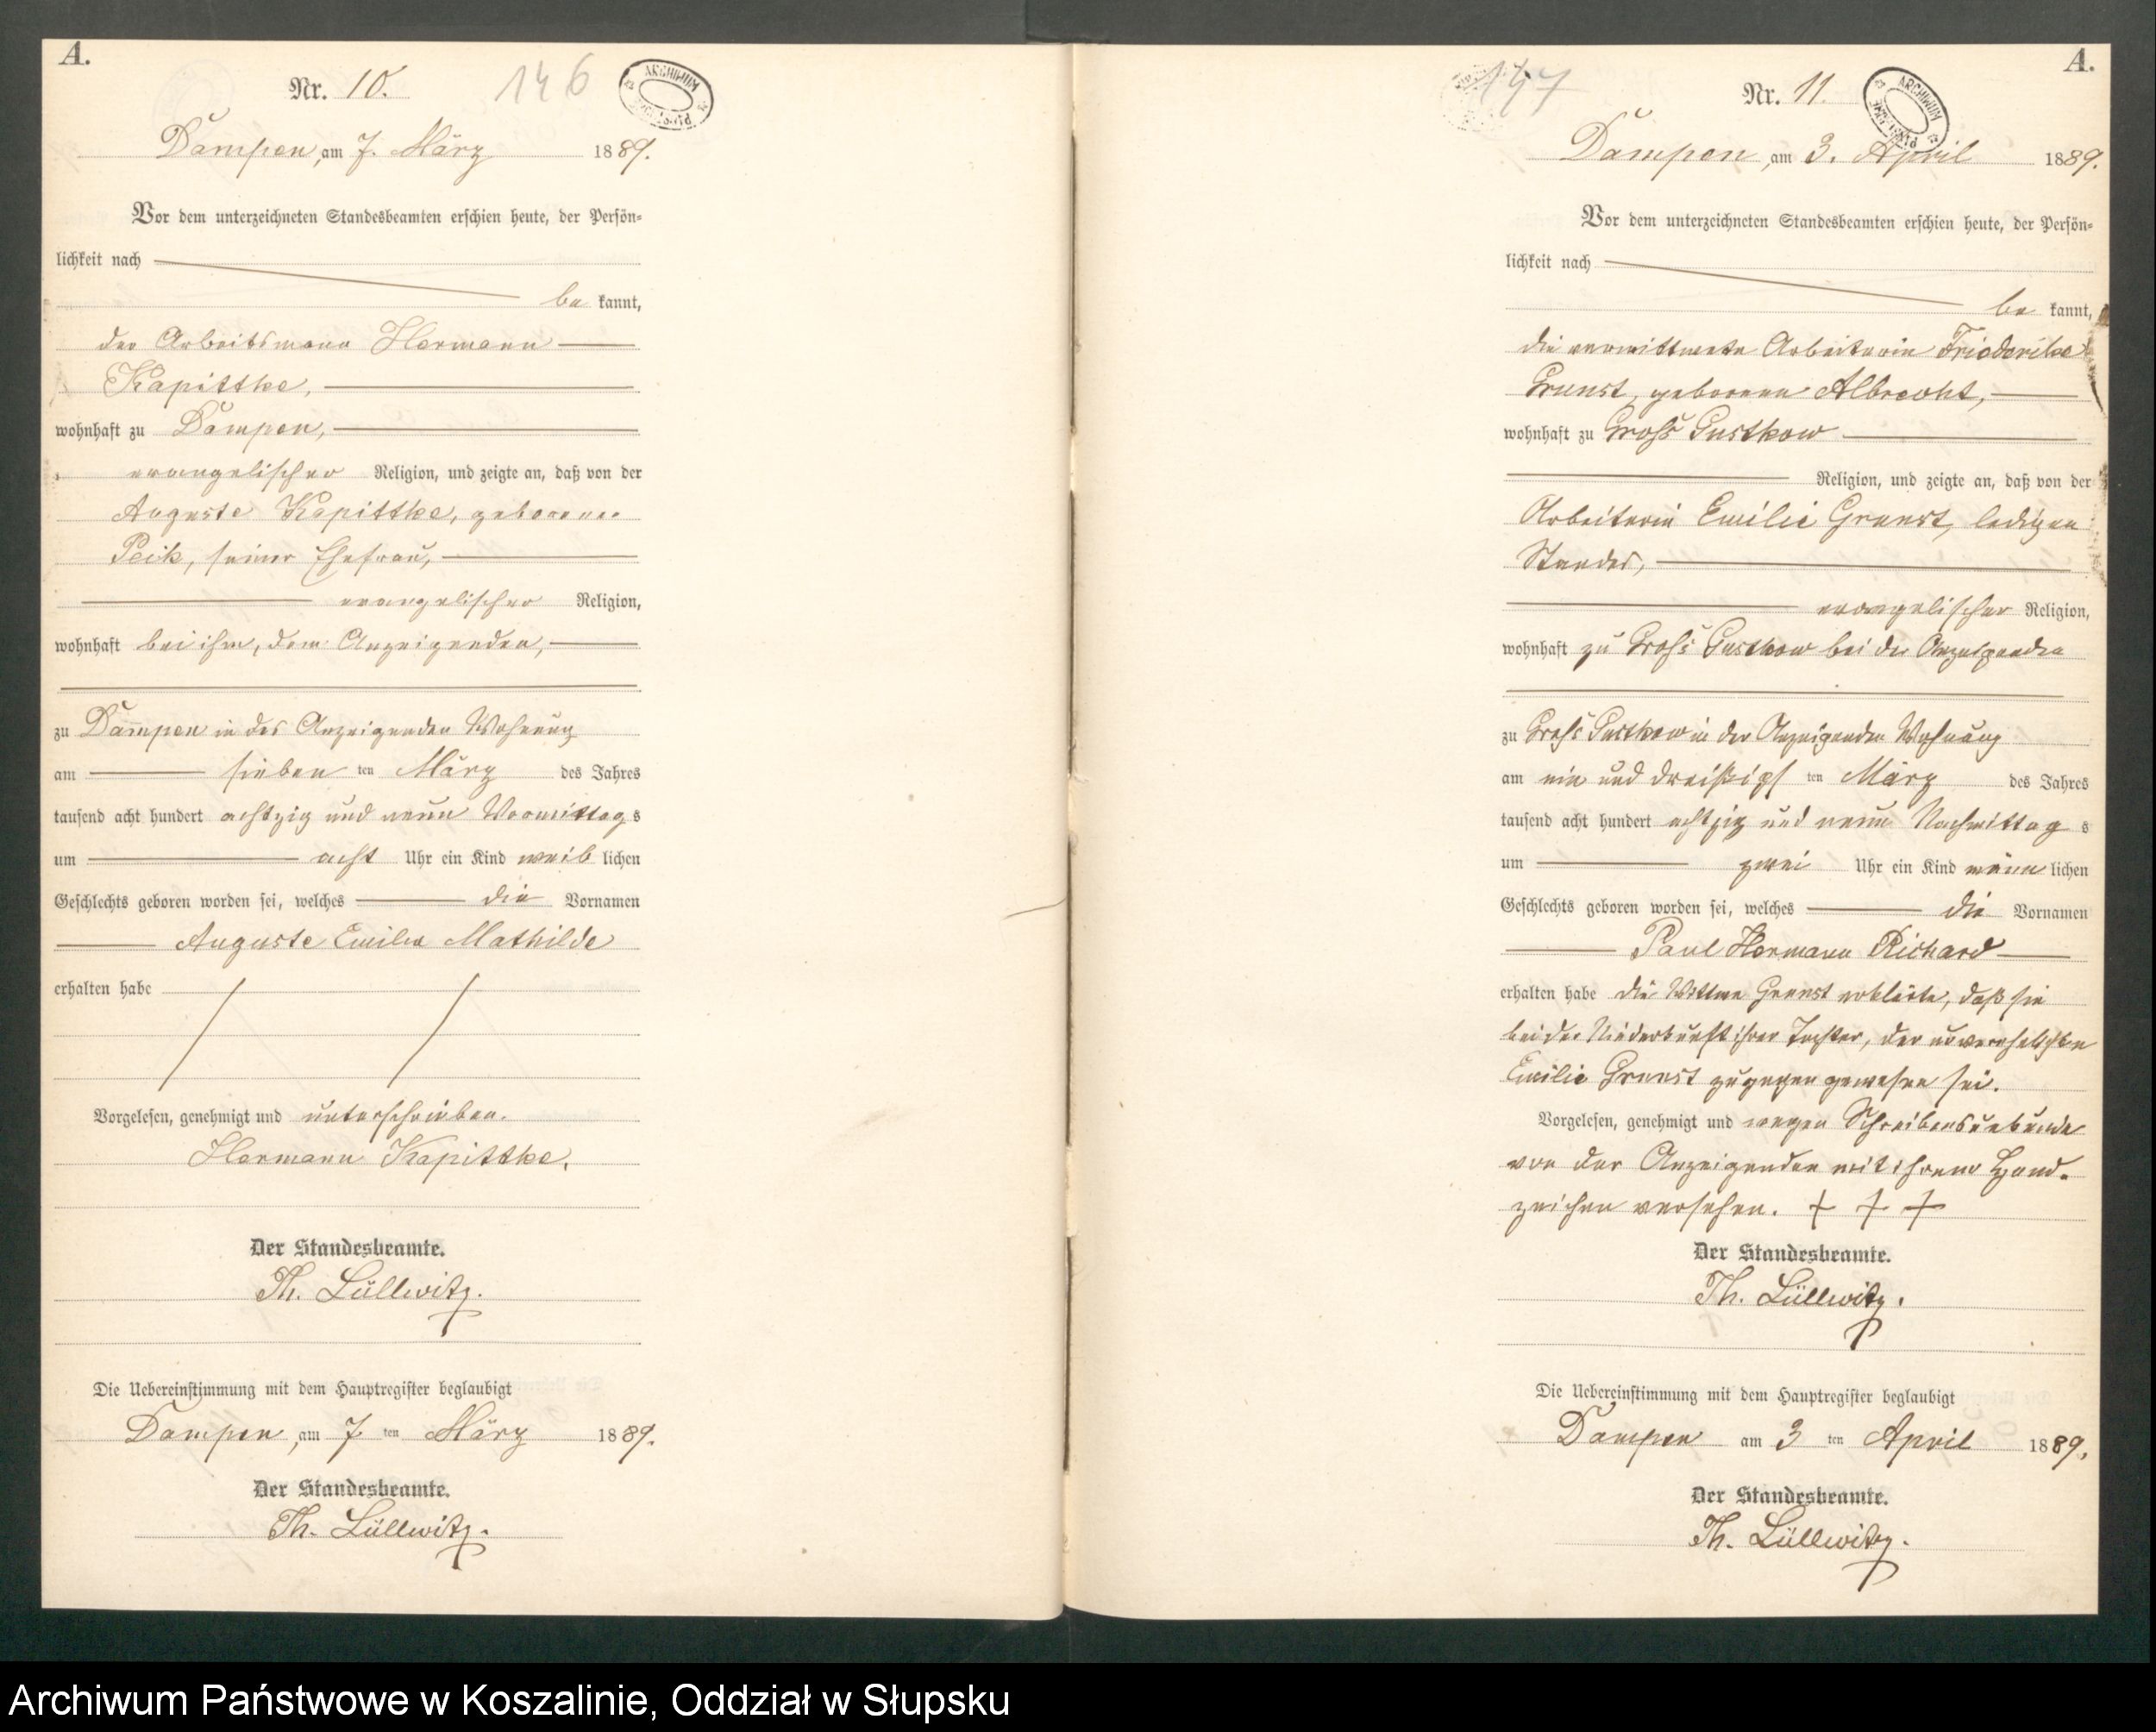 A.
Nr. 10.
146
ARCHIWUM
Dampen, am 7. März 1889.
Vor dem unterzeichneten Standesbeamten erschien heute, der Persön-
lichkeit nach
be kannt,
der Arbeitsmann Hermann
Kapittke,
wohnhaft zu Dampen,
evangelischer Religion, und zeigte an, daß von der
Auguste Kapittke, geborenen
Peik, seiner Ehefrau,
evangelischer Religion,
wohnhaft bei ihm, dem Anzeigenden,
zu Dampen in des Anzeigenden Wohnung
am sieben ten März des Jahres
tausend acht hundert achtzig und neun Vormittag s
um acht Uhr ein Kind weib lichen
Geschlechts geboren worden sei, welches die Vornamen
Auguste Emilie Mathilde
erhalten habe
Vorgelesen, genehmigt und unterschrieben.
Hermann Kapittke.
Der Standesbeamte.
Th. Lüllwitz.
Die Uebereinstimmung mit dem Hauptregister beglaubigt
Dampen, am 7 ten März 1889.
Der Standesbeamte.
Th. Lüllwitz.
A.
147
Nr. 11.
ARCHIWUM
Dampen, am 3. April 1889.
Vor dem unterzeichneten Standesbeamten erschien heute, der Persön-
lichkeit nach
be kannt,
die verwittwete Arbeiterin Friederike
Grunst, geborene Albrecht,
wohnhaft zu Gross Gustkow
Religion, und zeigte an, daß von der
Arbeiterin Emilie Grunst, ledigen
Standes,
evangelischer Religion,
wohnhaft zu Gross Gustkow bei der Anzeigenden
zu Gross Gustkow in der Anzeigenden Wohnung
am ein und dreißigs ten März des Jahres
tausend acht hundert achtzig und neun Nachmittag s
um zwei Uhr ein Kind männ lichen
Geschlechts geboren worden sei, welches die Vornamen
Paul Hermann Richard
erhalten habe die Wittwe Grunst erklärte, daß sie
bei der Niederkunft ihrer Tochter, der unverehelichten
Emilie Grunst zugegen gewesen sei.
Vorgelesen, genehmigt und wegen Schreibensunkunde
von der Anzeigenden mit ihrem Hand-
zeichen versehen. + + +
Der Standesbeamte.
Th. Lüllwitz.
Die Uebereinstimmung mit dem Hauptregister beglaubigt
Dampen am 3 ten April 1889.
Der Standesbeamte.
Th. Lüllwitz.
Archiwum Państwowe w Koszalinie, Oddział w Słupsku